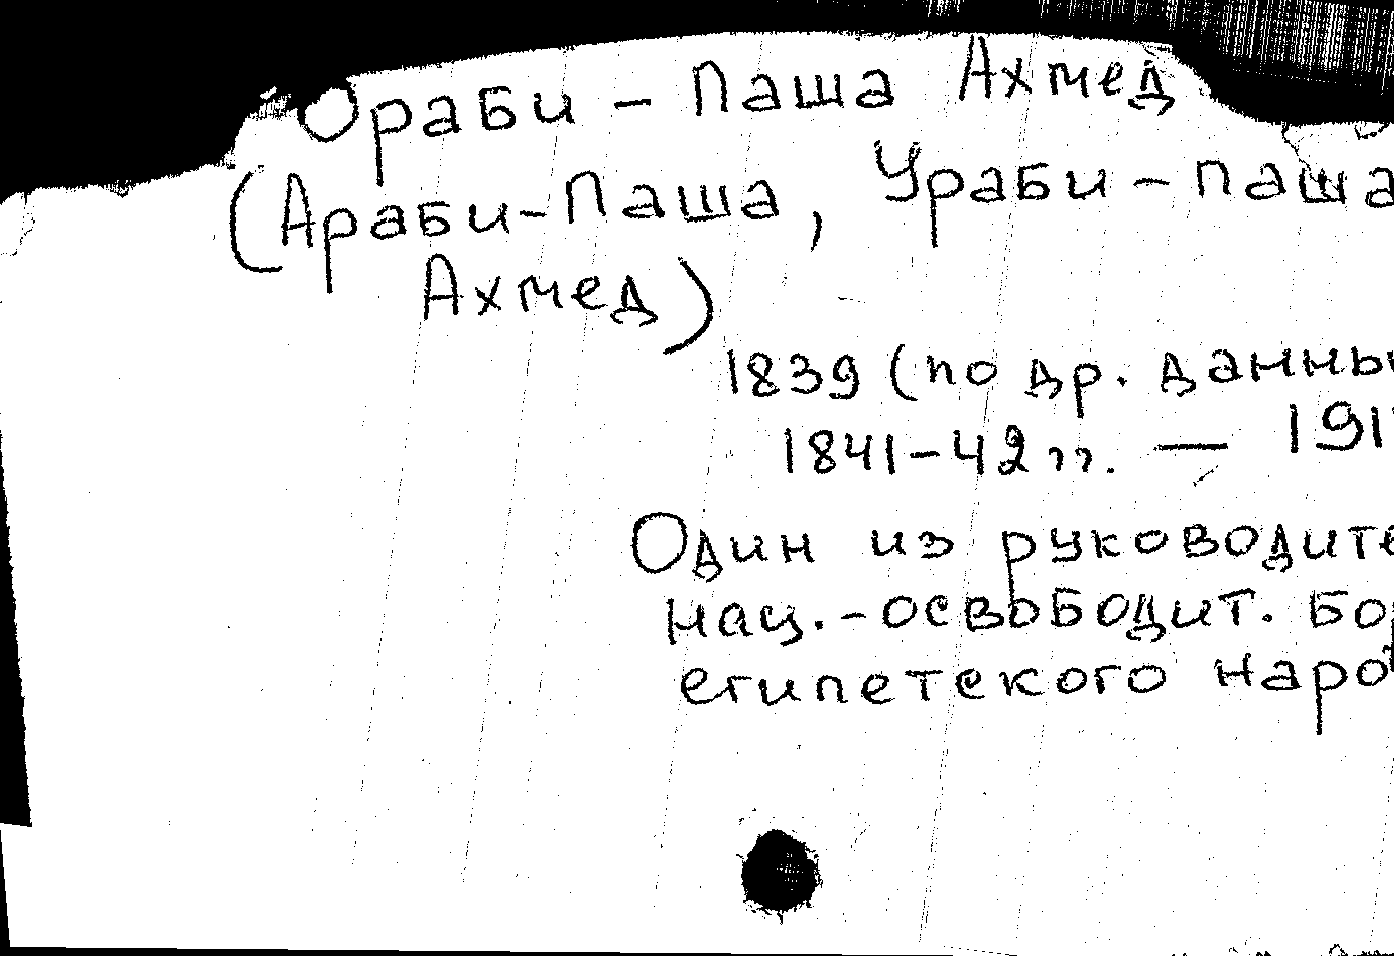 Ораби - Паша Ахмед
(Араби-Паша, Ураби-паша
Ахмед)
1839 (по др. данны
1841-42 гг. — 191
Один из руководите
нац.-освободит. бо
египетского наро